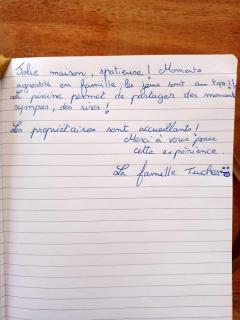 Jolie maison, spatieuse ! Moments
agréable en famille, les jeux sont au top !!
La piscine permet de partager des moments
sympas, des rires !
Les propriétaires sont accueillants !
Merci à vous pour
cette expérience
La famille Tuches